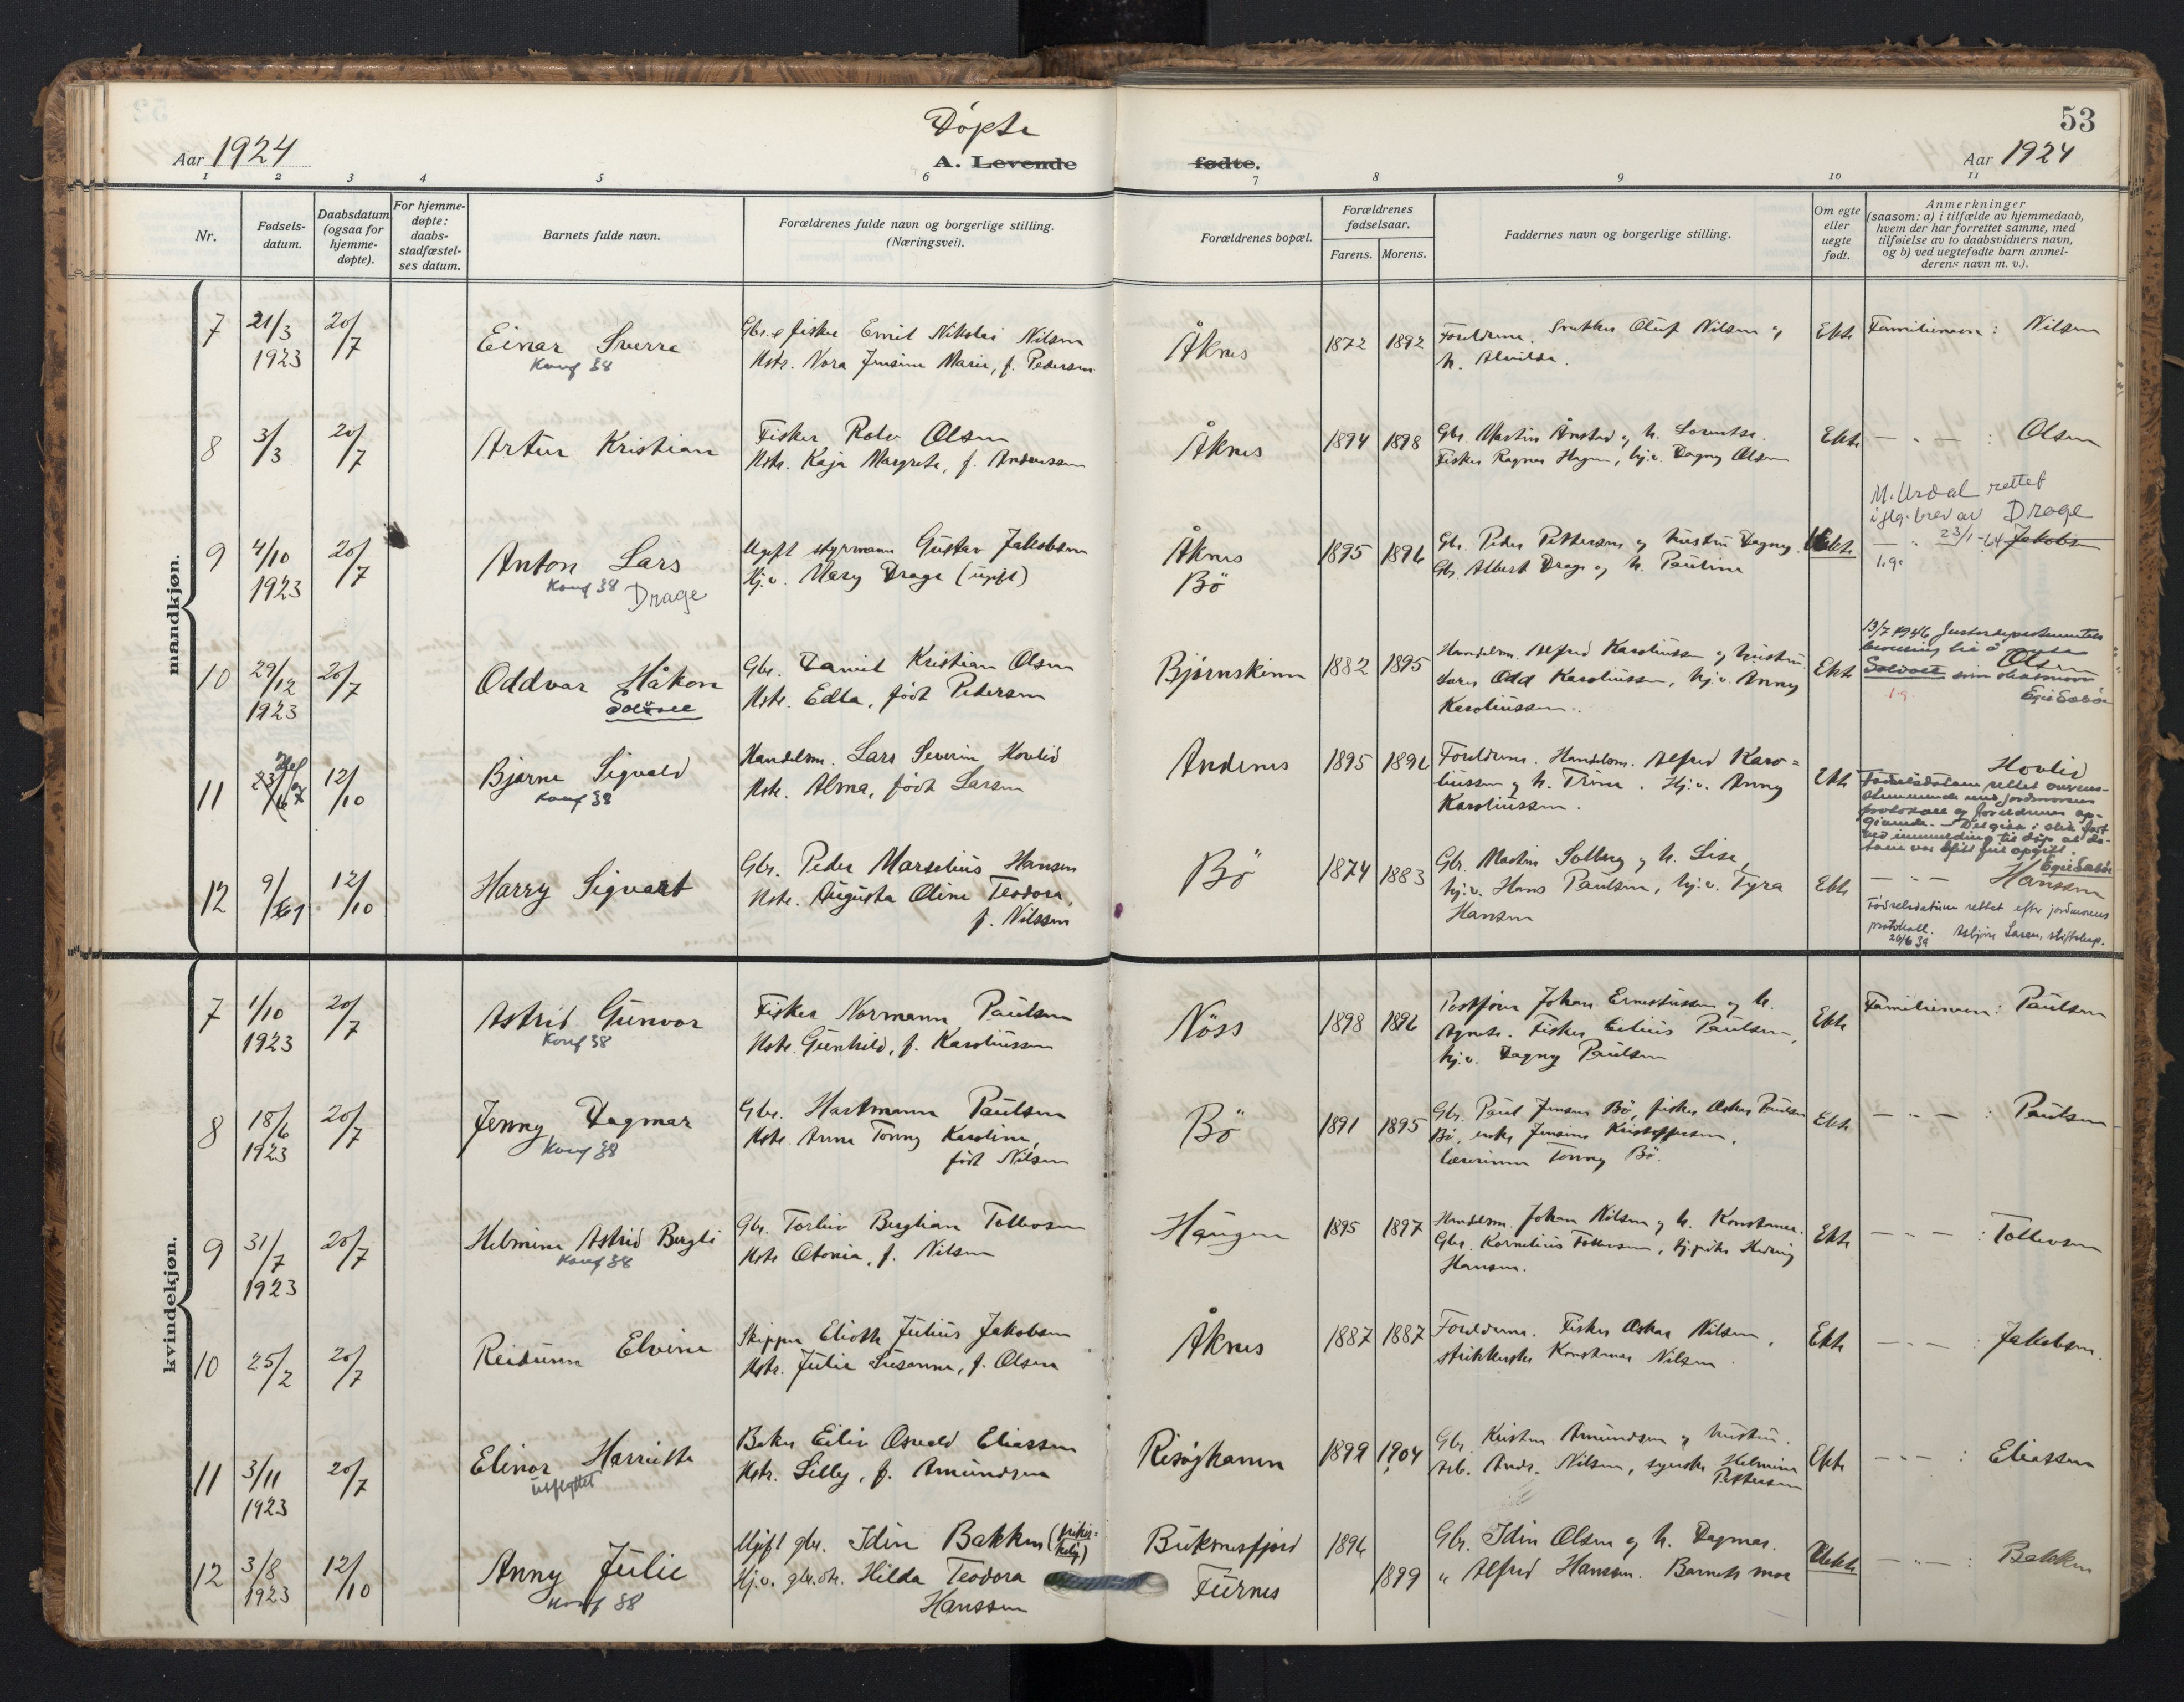 53
Døpte
Aar 1924
A. Levende fødte.
Aar 1924
1 2 3 4 5 6 7 8 9 10 11
Nr.
Fødsels-
datum.
Daabsdatum
(ogsaa for
hjemme-
døpte).
For hjemme-
døpte:
daabs-
stadfæstel-
ses datum.
Barnets fulde navn.
Forældrenes fulde navn og borgerlige stilling.
(Næringsvei).
Forældrenes bopæl.
Forældrenes
fødselsaar.
Farens. Morens.
Faddernes navn og borgerlige stilling.
Om egte
eller
uegte
født.
Anmerkninger
(saasom: a) i tilfælde av hjemmedaab,
hvem der har forrettet samme, med
tilføielse av to daabsvidners navn,
og b) ved uegtefødte barn anmel-
derens navn m. v.).
mandkjøn.
7 21/3 1923 20/7
Einar Sverre
Konf 38
Gbr. & fisker Emil Nikolai Nilsen
Hstr. Nora Jensine Marie, f. Pedersen
Åknes
1872 1892
Foreldrene. Snekker Oluf Nilsen og
h. Alvilda.
Ekte
Familienavn: Nilsen
8 3/3 20/7
Artur Kristian
Fisker Rolv Olsen
Hstr. Kaja Margrete, f. Andreassen
Åknes
1894 1898
Gbr. Martin Ånstad og h. Lorentse.
Fisker Ragnar Hagen, hj.v. Dagny Olsen
Ekte
— " — : Olsen
9 4/10 1923 20/7
Anton Lars
Konf 38 Drage
Ugift styrmann Gustav Jakobsen
Hj.v. Mary Drage (ugift)
Åknes
Bö
1895 1896
Gbr. Peder Pettersen og hustru Dagny.
Gbr. Albert Drage og h. Pauline
Uekte
M. Urdal rettet
iflg. brev av Drage
— " 23/1-64 Jakobsen
1.g.
10 29/12 1923 20/7
Oddvar Håkon
Solvoll
Gbr. Daniel Kristian Olsen
Hstr. Edla, født Pedersen
Bjørnskinn
1882 1895
Handelsm. Alfred Karoliussen og hustru.
Lars Odd Karoliussen, hj.v. Anny
Karoliussen.
Ekte
13/7 1946 Justisdepartementets
Olsen
Solvoll som slektsnavn
1.g.
11 23/6 12/10
Bjarne Sigvald
Konf 38
Handelsm. Lars Severin Hovlid
Hstr. Alma, født Larsen
Andenes
1895 1896
Foreldrene. Handelsm. Alfred Karo=
liussen og h. Trine. Hj.v. Anny
Karoliussen.
Ekte
Hovlid
Fødselsdatum rettet overens-
stemmende med jordmorens
protokoll og foreldrenes op-
givende.
12 9/6 12/10
Harry Sigvart
Gbr. Peder Marselius Hansen
Hstr. Augusta Oline Teodora,
f. Nilssen
Bö
1874 1883
Gbr. Martin Solberg og h. Lise,
hj.v. Hans Paulsen, hj.v. Tyra
Hansen
Ekte
— " — Hanssen
Fødselsdatum rettet efter jordmorens
protokoll.
26/6 39
kvindekjøn.
7 1/10 1923 20/7
Astrid Gunvor
Konf 38
Fisker Normann Paulsen
Hstr. Gunhild, f. Karoliussen
Nöss
1898 1896
Postfører Johan Ernestussen og h.
Agnete. Fisker Eilius Paulsen,
hj.v. Dagny Paulsen
Ekte
Familienavn: Paulsen
8 18/6 1923 20/7
Jenny Dagmar
Konf 38
Gbr. Hartmann Paulsen
Hstr. Anna Tonny Karoline,
født Nilsen
Bö
1891 1895
Gbr. Paul Jensen Bö, fisker Oskar Paulsen
Bö, enke Jensine Kristoffersen,
lærerinne Tonny Bö.
Ekte
— " — : Paulsen
9 31/7 1923 20/7
Helmine Astrid Bergli
Konf 38
Gbr. Torleiv Berglian Tollevsen
Hstr. Otonia, f. Nilsen
Haugen
1895 1897
Handelsm. Johan Nilsen og h. Konstanse.
Gbr. Kornelius Tollevsen, hj.pike Hedvig
Hansen.
Ekte
— " — : Tollevsen
10 25/2 20/7
Reidunn Elvine
Skipper Elioth Julius Jakobsen
Hstr. Julie Susanne, f. Olsen
Åknes
1887 1887
Foreldrene. Fisker Oskar Nilsen,
strikkerske Konstanse Nilsen.
Ekte
— " — : Jakobsen.
11 3/11 1923 20/7
Elinor Harriette
utflyttet
Baker Eiliv Osvald Eliassen
Hstr. Lilly, f. Amundsen
Risøyhamn
1899 1904
Gbr. Kristen Amundsen og hustru.
Arb. Andr. Nilsen, syerske Helmine
Pettersen
Ekte
— " — : Eliassen
12 3/8 1923 12/10
Anny Julie
Konf 38
Ugift gbr. Idin Bakken
Hj.v. gbr.dtr. Hilda Teodora
Hanssen
Buknesfjord
Furnes
1896
1899
Gbr. Idin Olsen og h. Dagmar.
" Alfred Hanssen. Barnets mor
Uekte
— " — : Bakken